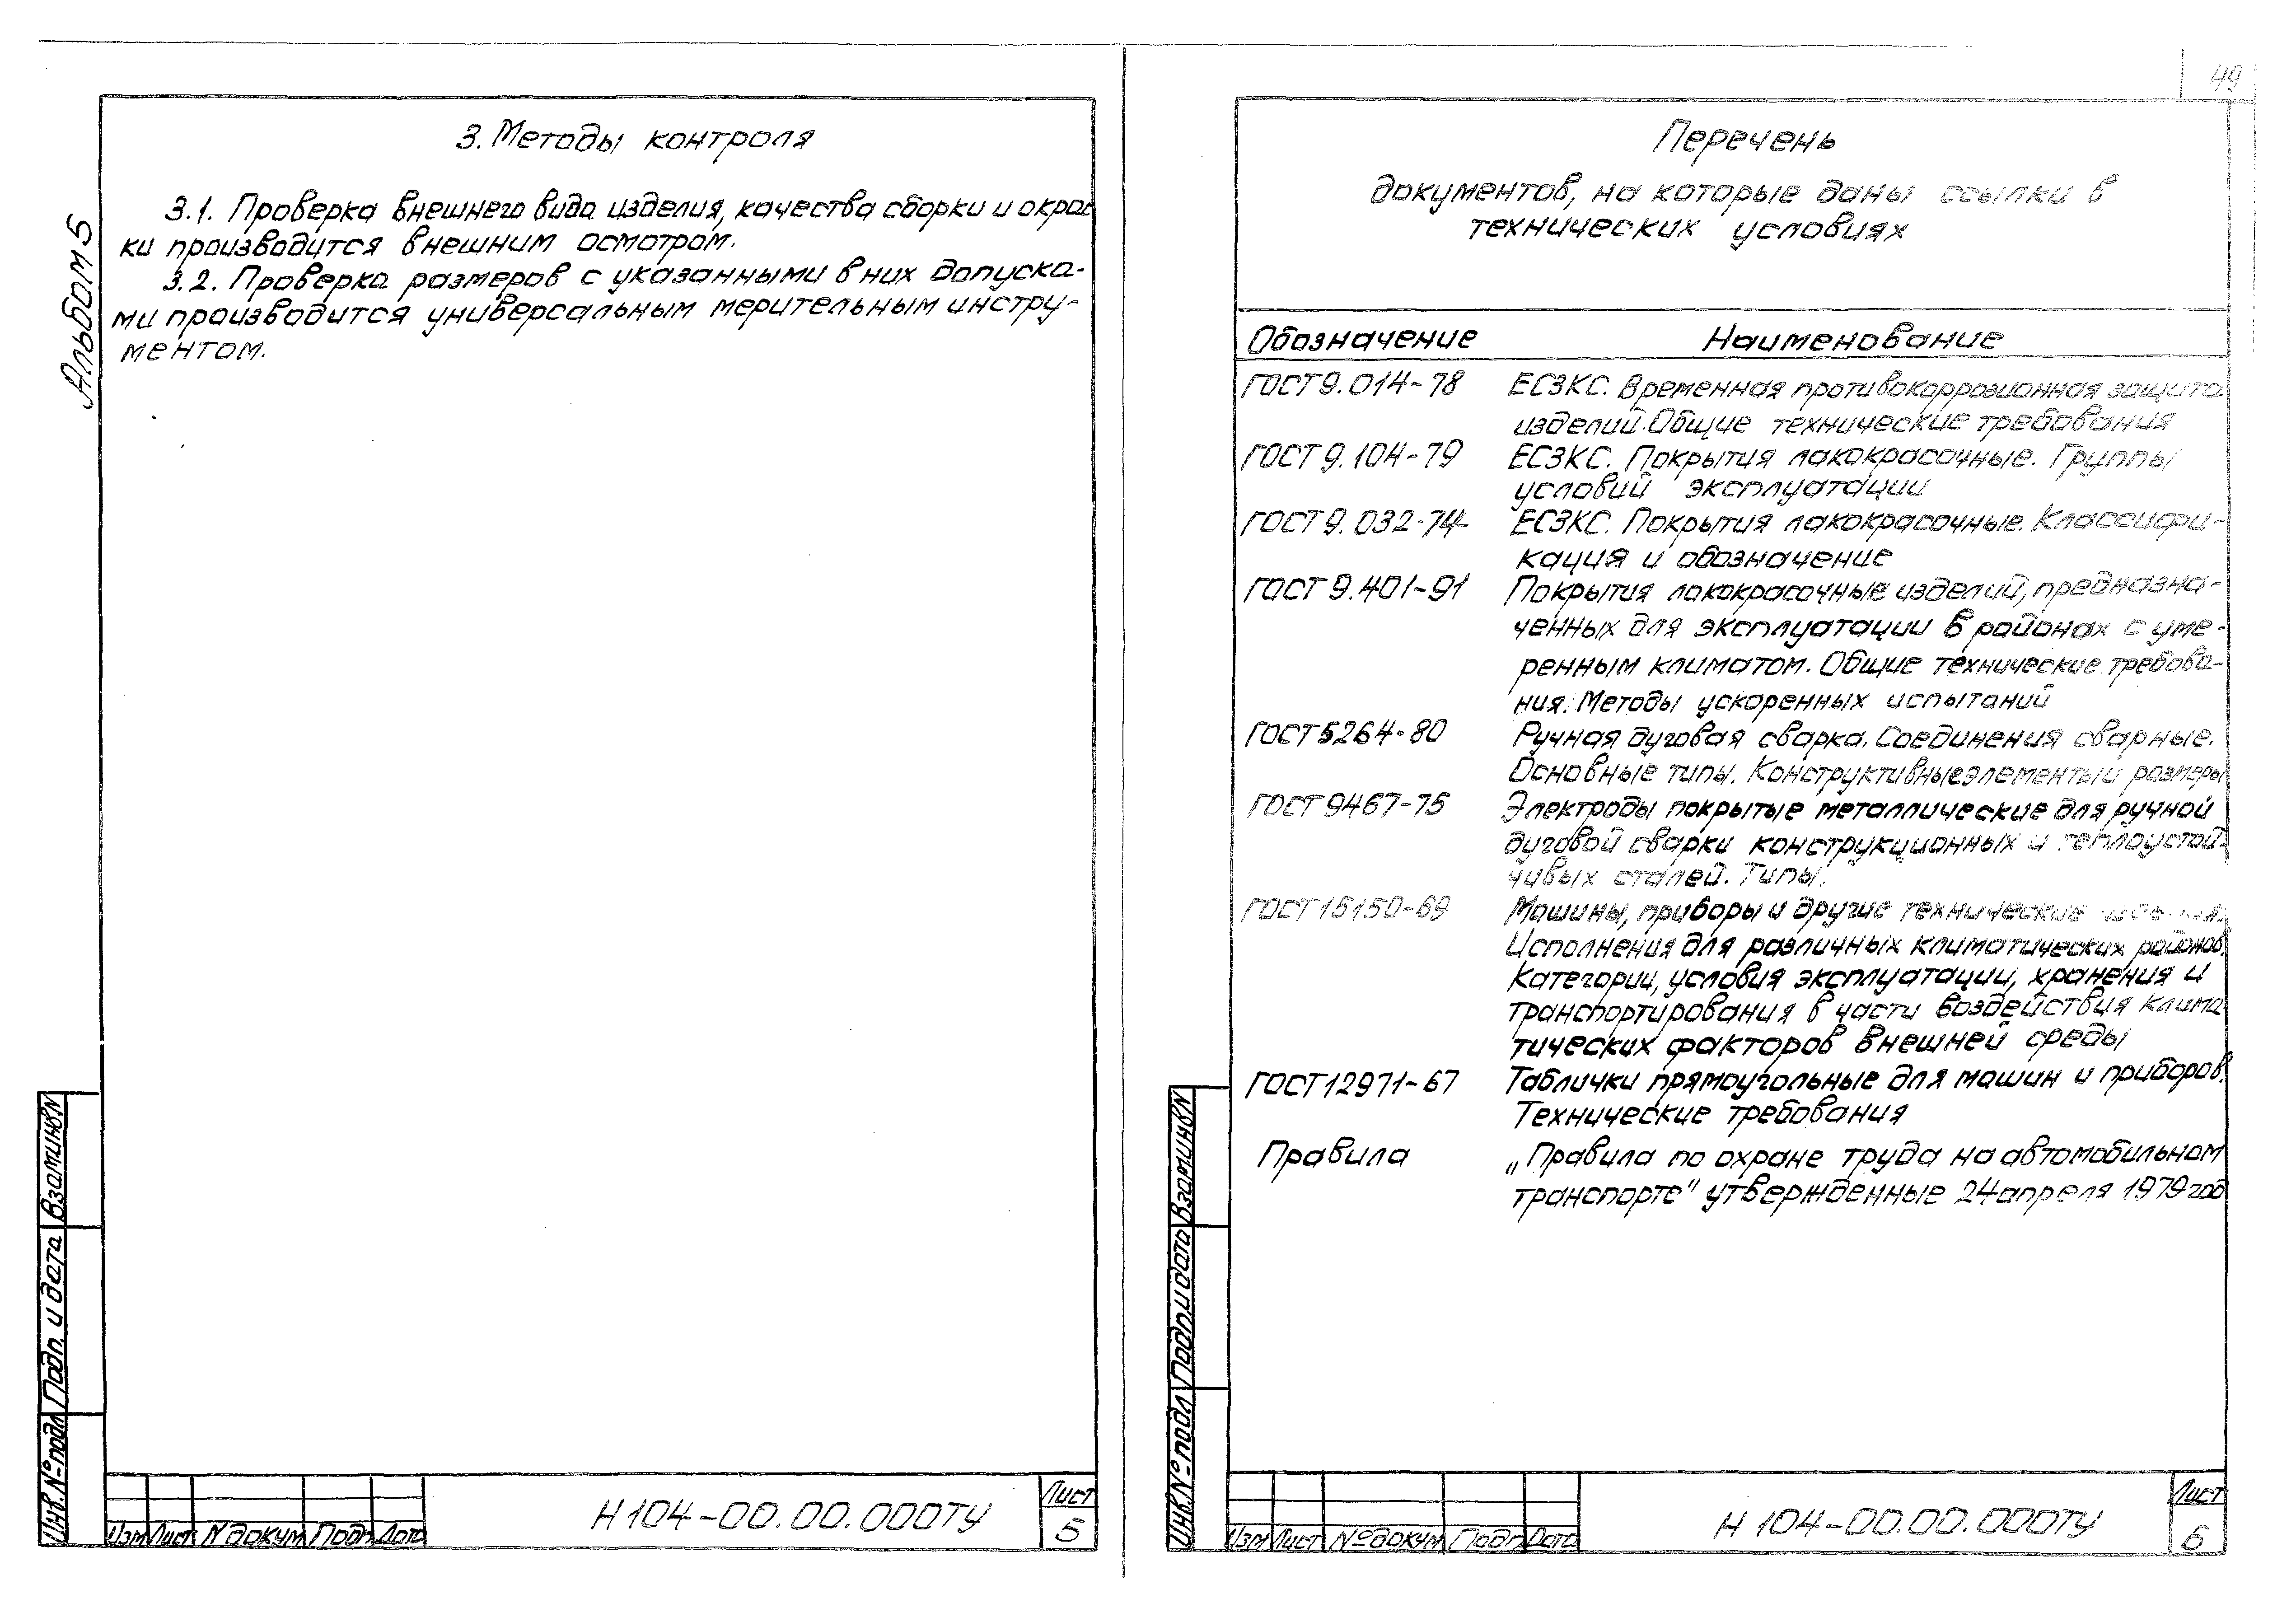 Альбом 5
3. Методы контроля
3.1. Проверка внешнего вида изделия, качества сборки и окрас
ки производится внешним осмотром.
3.2. Проверка размеров с указанными в них допуска-
ми производится универсальным мерительным инстру-
ментом.
Взам инв N
Подп. и дата
Инв. № подл
Изм Лист N докум Подп Дата
Н 104-00.00.000ТУ
Лист
5
49
Перечень
документов, на которые даны ссылки в
технических условиях
Обозначение Наименование
ГОСТ 9.014-78 ЕСЗКС. Временная противокоррозионная защита
изделий. Общие технические требования
ГОСТ 9.104-79 ЕСЗКС. Покрытия лакокрасочные. Группы
условий эксплуатации
ГОСТ 9.032-74 ЕСЗКС. Покрытия лакокрасочные. Классифи-
кация и обозначение
ГОСТ 9.401-91 Покрытия лакокрасочные изделий, предназна-
ченных для эксплуатации в районах с уме-
ренным климатом. Общие технические требова-
ния. Методы ускоренных испытаний
ГОСТ 5264-80 Ручная дуговая сварка. Соединения сварные.
Основные типы. Конструктивные элементы и размеры
ГОСТ 9467-75 Электроды покрытые металлические для ручной
дуговой сварки конструкционных и теплоустой-
чивых сталей. Типы.
ГОСТ 15150-69 Машины, приборы и другие технические
Исполнения для различных климатических районов.
Категории, условия эксплуатации, хранения и
транспортирования в части воздействия клима
тических факторов внешней среды
ГОСТ 12971-67 Таблички прямоугольные для машин и приборов.
Технические требования
Правила „Правила по охране труда на автомобильном
транспорте" утвержденные 24 апреля 1979 год
Взам инв N
Подп и дата
Инв. № подл
Изм Лист № докум Подп Дата
Н 104-00.00.000ТУ
Лист
6